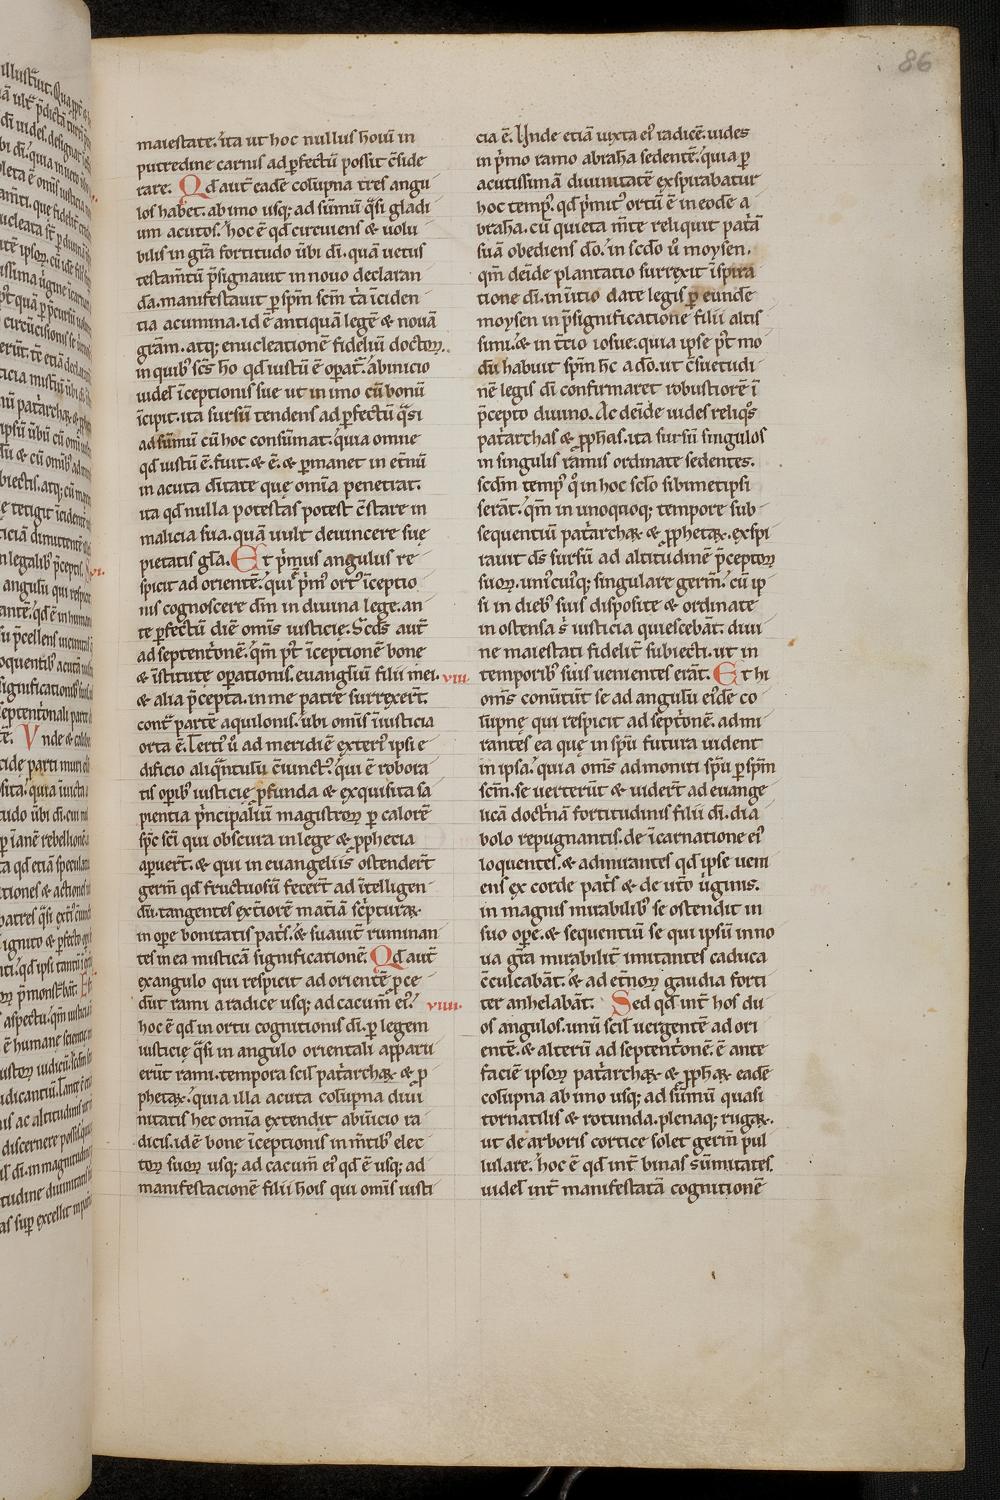 86
maiestate. ita ut hoc nullus hoīū in
putredine carnis ad ꝑfectū possit ɔ̄side
rare. Qd aut̄ eadē colūpna tres angu
los habet. ab imo usq; ad sūmū q̄si gladi
um acutos. hoc ē qd circuiens & uolu
bilis in grā fortitudo ūbi dī. quā uetus
testam̄tū p̄signauit in nouo declaran
da. manifestauit ꝑ spm̄ scm̄ t̄a īciden
tia acumina. id ē antiquā legē & nouā
grām. atq; enucleationē fideliū doctoꝝ.
in quib' scs ho qd iustū ē opat̄. ab inicio
uidel īceptionis sue ut in imo cū bonū
īcipit. ita sursū tendens ad ꝑfectū q̄si
ad sūmū cū hoc consūmat. quia omne
qd iustū ē. fuit. & ē. & ꝑmanet in et̄nū
in acuta d̄itate quę omīa penetrat.
ita qd nulla potestas potest ɔ̄stare in
malicia sua. quā uult deuincere suę
pietatis gl̄a. Et p̄mus angulus re
spicit ad orientē. qui p̄m' ort' īceptio
nis cognoscere dm̄ in diuina lege. an
te ꝑfectū diē omīs iusticię. Scds aut̄
ad septent̄onē. qm̄ pt̄ īceptionē bone
& īstitute oꝑationis. euangliū filii mei. viii.
& alia p̄cepta. in me patre surrexer̄t.
cont̄ partē aquilonis. ubi omīs iniusticia
orta ē. Terti' ū ad meridiē exteri' ipsi e
dificio aliq̄ntulū ɔ̄iunct'. qui ē robora
tis oꝑib' iusticię ꝓfunda & exquisita sa
pientia p̄ncipaliū magistroꝝ ꝑ calorē
spc scī qui obscura in lege & ꝓphecia
apuer̄t. & qui in euangeliis ostender̄t
germ̄ qd fructuosū fecer̄t ad ītelligen
dū. tangentes ext̄iorē mat̄iā sc̄pturaꝝ
in ope bonitatis pat̄s. & suauit̄ ruminan
tes in ea misticā significationē. Qd aut̄
ex angulo qui respicit ad orientē ꝓce
dūt rami a radice usq; ad cacum̄ ei'. viiii.
hoc ē qd in ortu cognitionis dī. ꝑ legem
iusticię q̄si in angulo orientali apparu
erūt rami. tempora scil pat̄archaꝝ & ꝓ
phetaꝝ. quia illa acuta colūpna diui
nitatis hec omīa extendit ab inicio ra
dicis. id ē bone īceptionis in m̄tib' elec
toꝝ suoꝝ usq; ad cacum̄ ei' qd ē usq; ad
manifestacionē filii hoīs qui omīs iusti
cia ē. Unde etiā iuxta ei' radicē. uides
in p̄mo ramo abrahā sedentē. quia ꝑ
acutissimā diuinitatē exspirabatur
hoc temp'. qd p̄mit' ortū ē in eodē a
braha. cū quieta m̄te reliquit patā
suā obediens dō. in scdō ū moysen.
qm̄ deīde plantatio surrexit īspira
tione dī. in īitio date legis ꝑ eundē
moysen in p̄significatione filii altis
simi. & in t̄tio iosue. quia ipse pt̄ mo
dū habuit spm̄ hc a dō. ut ɔ̄suetudi
nē legis dī confirmaret robustiorē ī
p̄cepto diuino. Ac deīde uides reliq̄s
pat̄archas & ꝓphas. ita sursū singulos
in singulis ramis ordinate sedentes.
scdm̄ temp' q̄ in hoc scl̄o sibimetipsi
serāt. qm̄ in unoquoq; tempore sub
sequentiū pat̄archaꝝ & ꝓphetaꝝ. exspi
rauit ds sursū ad altitudinē p̄ceptoꝝ
suoꝝ. unicuiq; singulare germ̄. cū ip
si in dieb' suis disposite & ordinate
in ostensa s' iusticia quiescebāt. diui
ne maiestati fidelit̄ subiecti. ut in
temporib' suis uenientes erāt. Et hi
om̄s conūtūt se ad angulū ei'dē co
lūpnę qui respicit ad sept̄onē. admi
rantes ea quę in spū futura uident
in ipsa. quia om̄s admoniti spū ꝑ spm̄
scm̄. se uerterūt & uider̄t ad euange
licā doct̄nā fortitudinis filii dī. dia
bolo repugnantis. de īcarnatione ei'
loquentes. & admirantes qd ipse ueni
ens ex corde pat̄s & de ut̄o ūginis.
in magnis mirabilib' se ostendit in
suo ope. & sequentiū se qui ipsū in no
ua gr̄a mirabilit̄ imitantes caduca
ɔ̄culcabāt. & ad et̄noꝝ gaudia forti
ter anhelabāt. Sed qd int̄ hos du
os angulos. unū scil uergentē ad ori
entē. & alterū ad septent̄onē. ē ante
faciē ipsoꝝ pat̄archaꝝ & ꝓphaꝝ eadē
colūpna ab imo usq; ad sūmū quasi
tornatilis & rotunda. plenaq; rugaꝝ.
ut de arboris cortice solet germ̄ pul
lulare. hoc ē qd int̄ binas sūmitates.
uidel int̄ manifestatā cognitionē